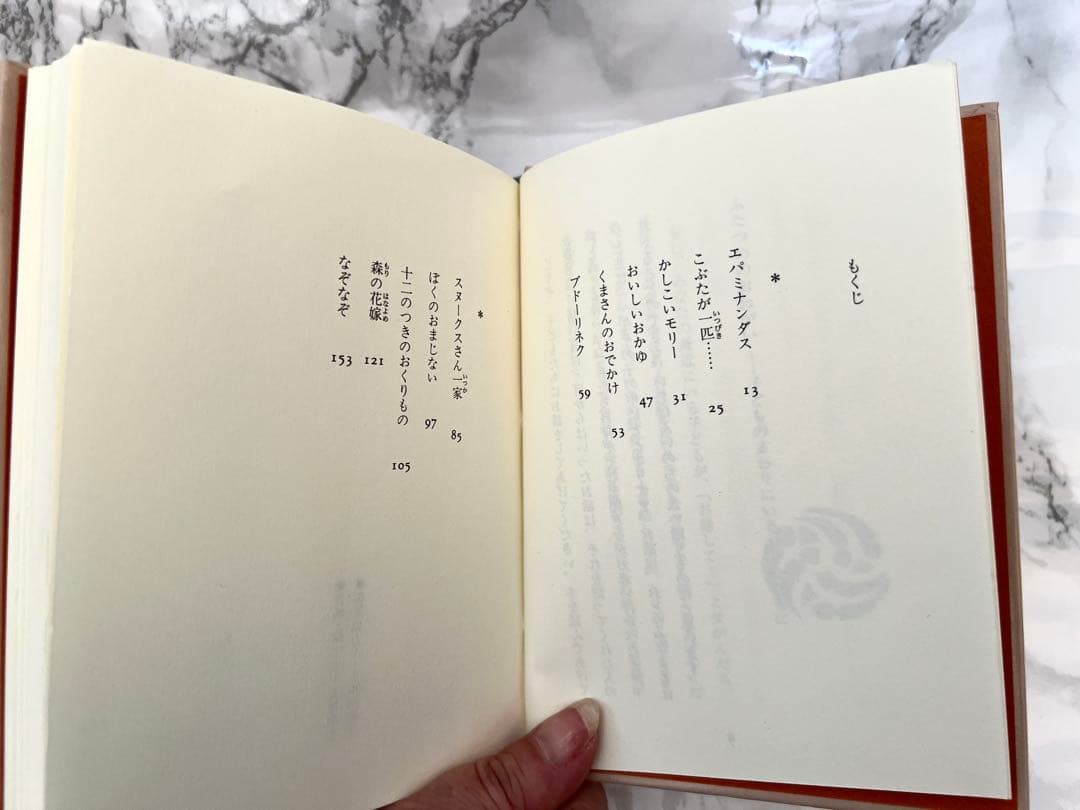 もくじ
*
エパミナンダス 13
こぶたが一匹…… 25
かしこいモリー 31
おいしいおかゆ 47
くまさんのおでかけ 53
ブドーリネク 59
*
スヌークスさん一家 85
ぼくのおまじない 97
十二のつきのおくりもの 105
森の花嫁 121
なぞなぞ 153